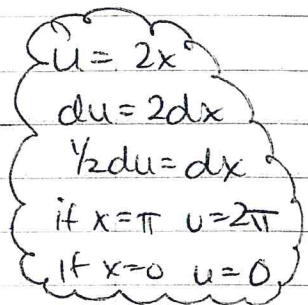 u = 2x
du = 2dx
1/2 du = dx
if x = π u = 2π
If x = 0 u = 0